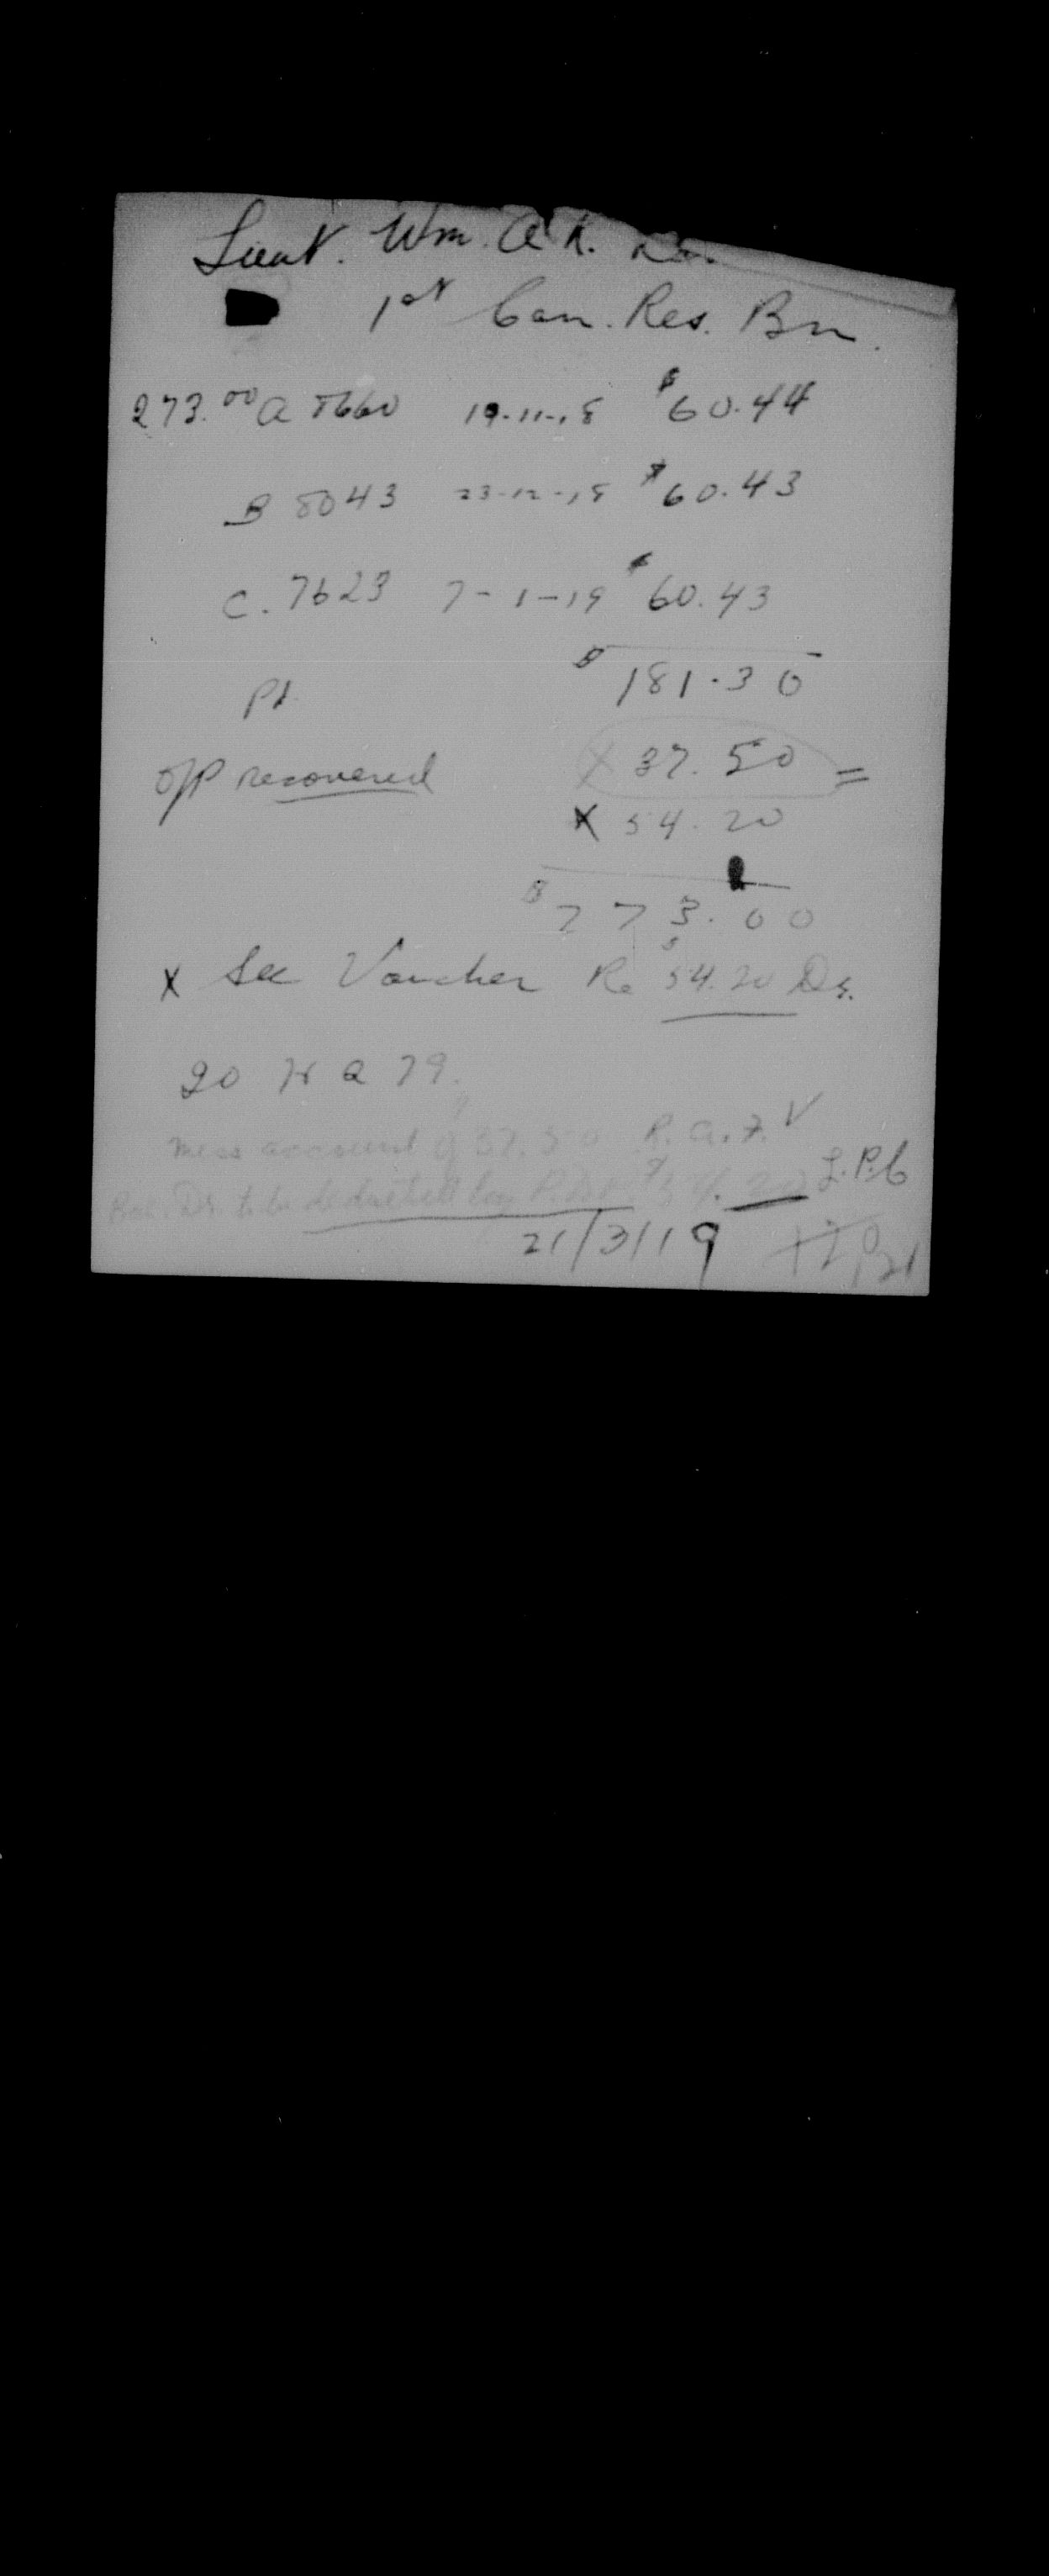 Lieut. Wm. A. R.
1st Can. Res. Bn.
273.00 A 8660 19-11-18 $60.44
B 8043 23-12-18 $60.43
C. 7623 7-1-19 $60.43
$181.30
Pd.
X 37.50 =
o/p recovered
X 54.20
$273.00
X See Voucher Re $54.20 Dr.
mess account of 37.50 R.A.F. V
Bal. Dr. to be deducted by 54.20 L.P.C
21/3/19